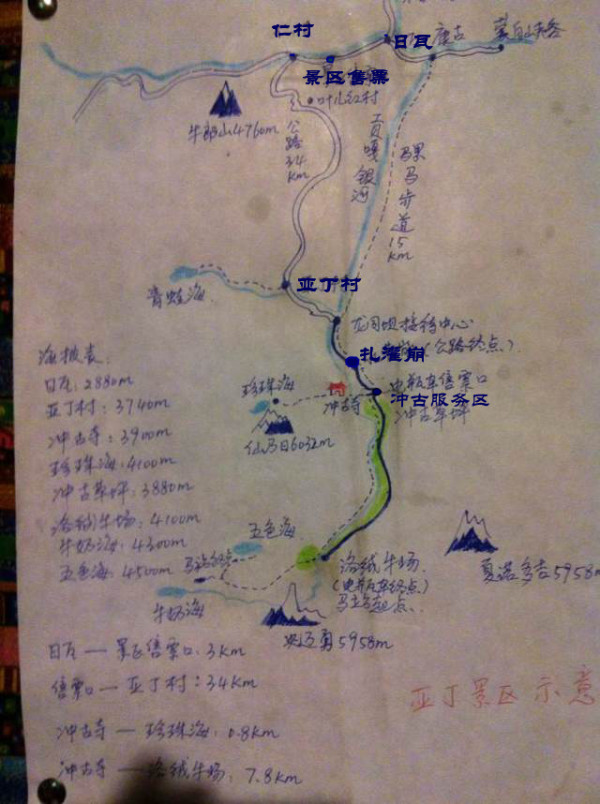 仁村
日瓦
景区售票
叶儿红村
牛郎山4760m
公路34km
工贡嘎银河
骡马步道15km
青蛙海
亚丁村
龙同坝接待中心
(公路终点)
扎灌崩
电瓶车售票口
冲古服务区
冲古草坪
珍珠海
冲古寺
仙乃日6032m
海拔表:
日瓦:2880m
亚丁村:3740m
冲古寺:3900m
珍珠海:4100m
冲古草坪:3880m
洛绒牛场:4100m
牛奶海:4300m
五色海:4500m
五色海
牛奶海
洛绒牛场
(电瓶车终点)
起点
夏诺多吉5958m
央迈勇5958m
日瓦—景区售票口:3km
售票口—亚丁村:34km
冲古寺—珍珠海:0.8km
冲古寺—洛绒牛场:7.8km
亚丁景区示意